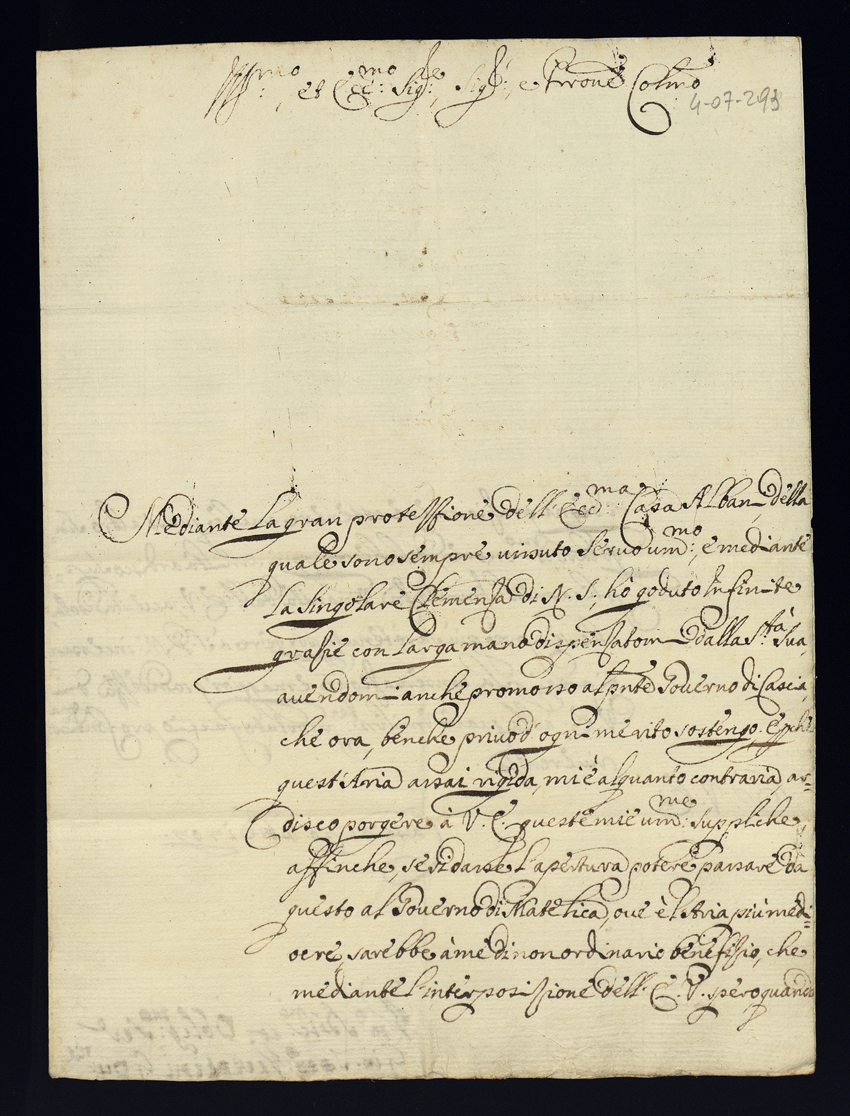 Ill:mo, et Ecc:mo Sig:re, Sig:re, e Prone Colmo
4-07-293
Mediante la gran protessione dell' Ecc:ma Casa Albani, della
quale sono sempre vissuto servo um:mo, e mediante
la singolare Clemenza di N. S., hò goduto infinite
grazie con larga mano dispensatomi dalla S.tà Sua,
auendomi anche promosso al pnte Gouerno di Cascia
che ora, benche priuo d'ogni merito sostengo. E pche
quest'Aria assai rigida, mi è alquanto contraria, ar=
disco porgere à V. E. queste mie um:me suppliche
affinche, se si dasse l'apertura potere passare da
questo al Gouerno di Matelica, oue è l'Aria più medi=
ocre, sarebbe à me di non ordinario benefizio, che
mediante l'interposizione dell' E. V. spero quando